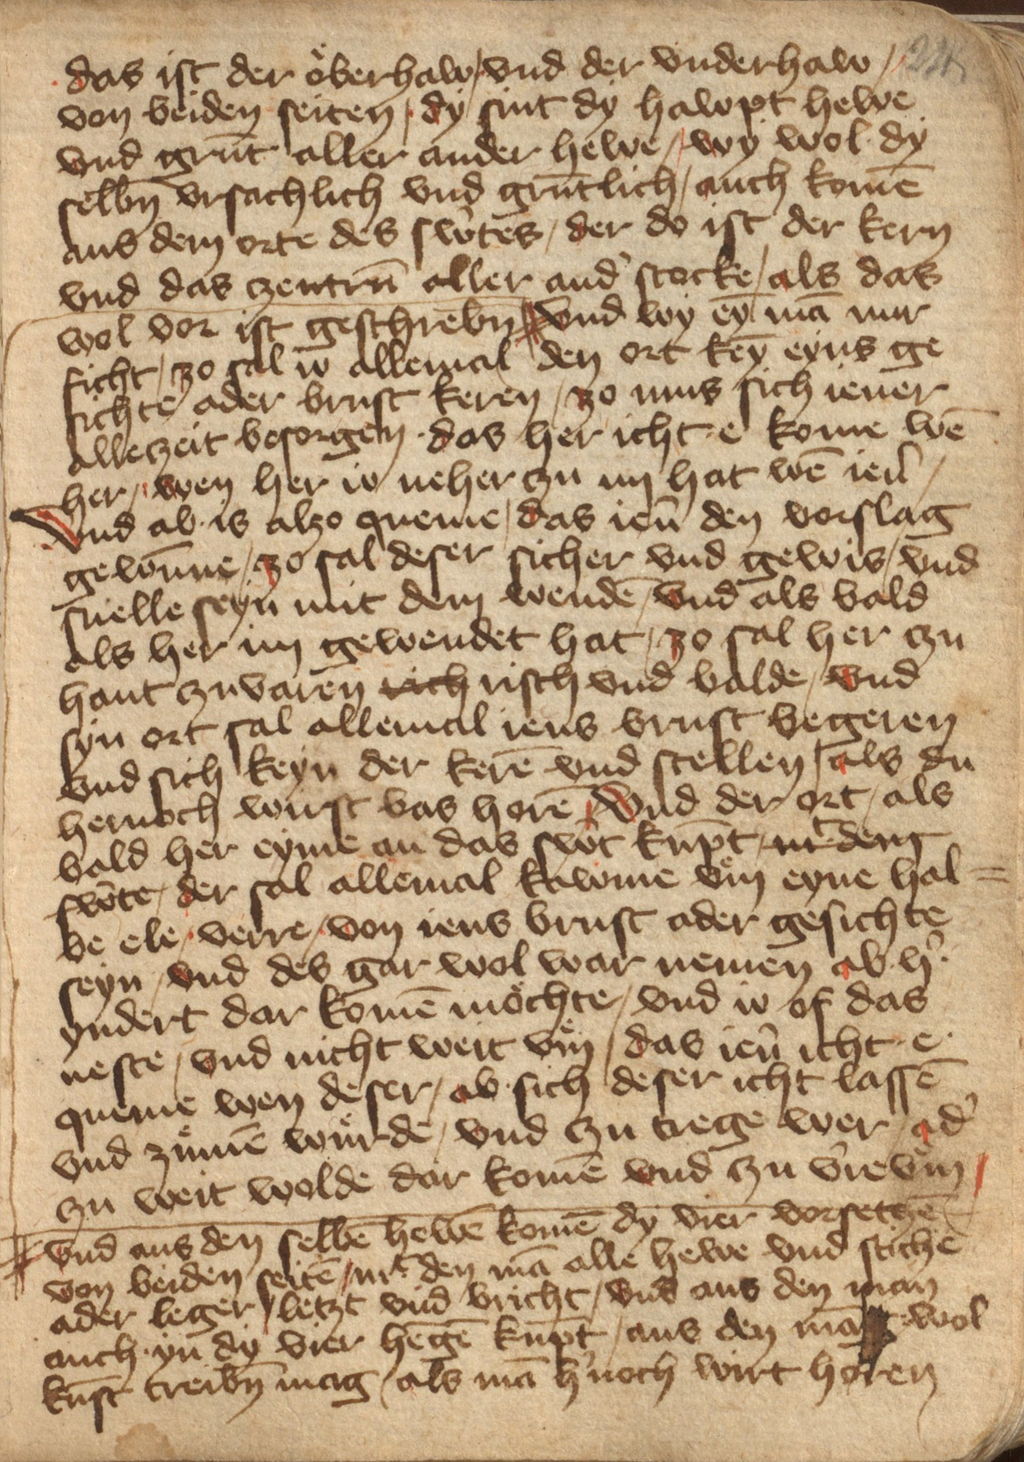 das ist der öberhaw / vnd der vnderhaw /
von beiden seiten / dy sint dy hawpt hewe
vnd grūt aller ander hewe / wy wol dy
selbn̄ vrsachlich vnd grūtlich / auch komē
aus dem orte des sw̄tes / der do ist der kern
vnd das zentrū aller and' stocke / als das
wol vor ist geschrebn̄ Vnd wy eȳ mā nur
ficht / zo sal io allemal den ort keȳ eyns ge
sichte ader brust keren / zo mus sich iener
allezeit besorgen das her icht e kome wē
her / wen her io neher zu im hat wē ien̄ /
Vnd ab is alzo queme / das ien̄ den vorslag
gewūne / zo sal deser sicher vnd gewis / vnd
snelle seyn mit dem wendē / vnd als bald
als her im gewendet hat / zo sal her zu
hant zuvaren risch vnd balde / vnd
syn ort sal allemal iens brust begeren
vnd sich keyn der kerē vnd stellen / als du
hernoch wirst bas horē Vnd der ort / als
bald her eyme an das sw̄t kūpt / mt deng
sw̄te / der sal allemal kawme vm̄ eyne hal=
be ele / verre / von iens brust ader gesichte
seyn / vnd des gar wol war nemen ab h'
yndert dar komē möchte / vnd io of das
neste / vnd nicht weit vm̄ / das ien̄ icht e
queme wen deser / ab sich deser icht lassē
vnd zümē würde / vnd zu trege wer / ad'
zu weit wolde dar komē vnd zu v're vm̄ /
vnd aus den selbē hewē komē dy vier vorsetczē
von beiden seitē / mt den mā alle hewe vnd stiche
ader leger / letzt vnd bricht / vnd aus den man
auch yn dy vier hēgē kūpt / aus den mā wol
kūst treibn̄ mag / als mā h'noch wirt hören